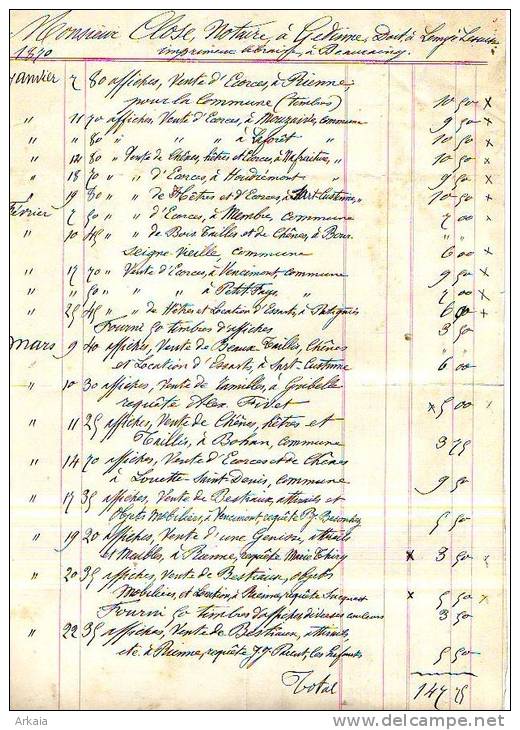 Monsieur Close, Notaire, à Gedinne, Doit à
1870 imprimeur libraire, à Beauraing.
Janvier 7 80 affiches, Vente d'Ecorces, à Rienne,
pour la Commune (timbres) 10 50 x
" 11 70 affiches, Vente d'Ecorces, à Mouzaive, commune 9 50 x
" " 80 " " " à Laforêt " 10 50 x
" 12 80 " Vente de Chênes, hêtres et Ecorces, à Nafraiture, " 10 50 x
" 18 70 " " d'Ecorces, à Houdremont " 9 50 x
" 19 80 " " de Hêtres et d'Ecorces, à Sart-Custinne, " 10 50 x
Février 7 50 " " d'Ecorces, à Membre, commune 7 00 x
" 10 45 " " de Bois Taillis et de Chênes, à Bour-
seigne-vieille, commune 6 00 x
" 17 70 " Vente d'Ecorces, à Vencimont, commune 9 50 x
" " 50 " " à Petit-Fays, " 7 00 x
" 25 45 " " de Hêtres et Location d'Essarts, à Patignies 6 00 x
Fourni 50 timbres d'affiches 3 50
Mars 9 40 affiches, Vente de Beaux Taillis, Chênes
et Location d'Essarts, à Sart-Custinne 6 00
" 10 30 affiches, Vente de à
requête Alex. Fivet x 5 00 x
" 11 25 affiches, Vente de Chênes, hêtres et
Taillis, à Bohan, commune 3 75
" 14 70 affiches, Vente d'Ecorces et de Chênes
à Louette-Saint-Denis, commune 9 50
" 17 35 affiches, Vente de Bestiaux, attirails et
objets mobiliers, à Vencimont, requête 5 50
" 19 20 affiches, Vente d'une Genisse, attirails
et Meubles, à Rienne, requête Marie Thiry x 3 50 x
" 20 35 affiches, Vente de Bestiaux, objets
Mobiliers, et Location, à Rienne, requête Jacquet x 5 50 x
Fourni 50 timbres d'affiches diverses couleurs 3 50
" 22 35 affiches, Vente de Bestiaux, attirails,
etc. à Rienne, requête J. J. les Enfants 5 50
Total 147 75
Arkaia
delcampe.net